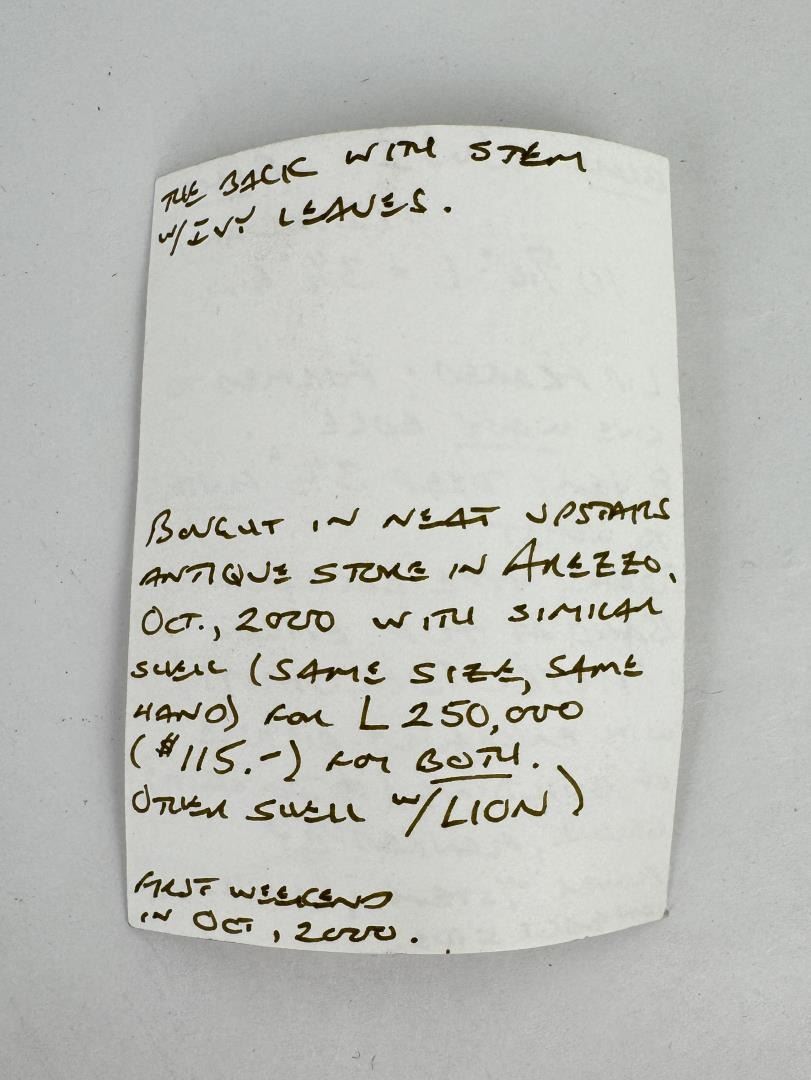 THE BACK WITH STEM
W/IVY LEAVES.
BOUGHT IN NEAT UPSTAIRS
ANTIQUE STORE IN AREZZO,
OCT., 2000 WITH SIMILAR
SHELL (SAME SIZE, SAME
HAND) FOR L 250,000
($115.-) FOR BOTH.
OTHER SHELL W/LION)
FIRST WEEKEND
IN OCT, 2000.